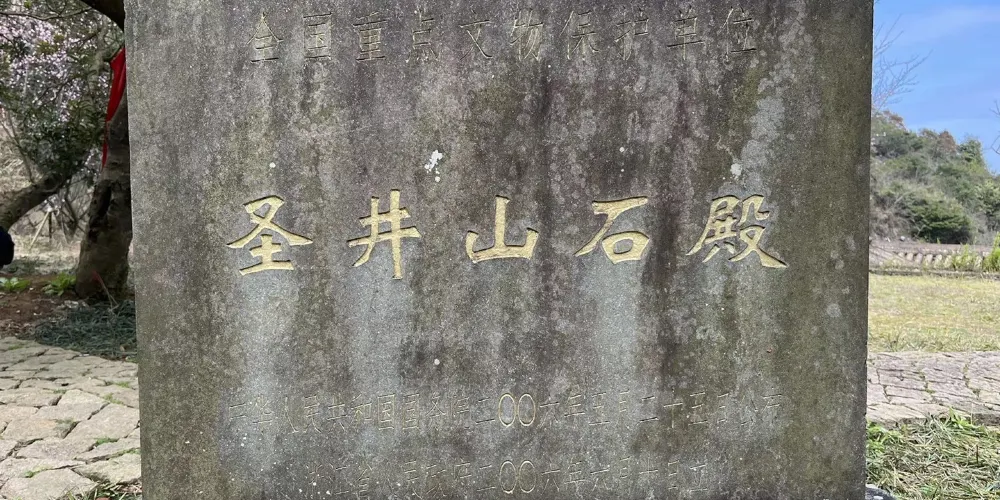 全国重点文物保护单位
圣井山石殿
中华人民共和国国务院二〇〇六年五月二十五日公布
浙江省人民政府二〇〇六年六月十日立